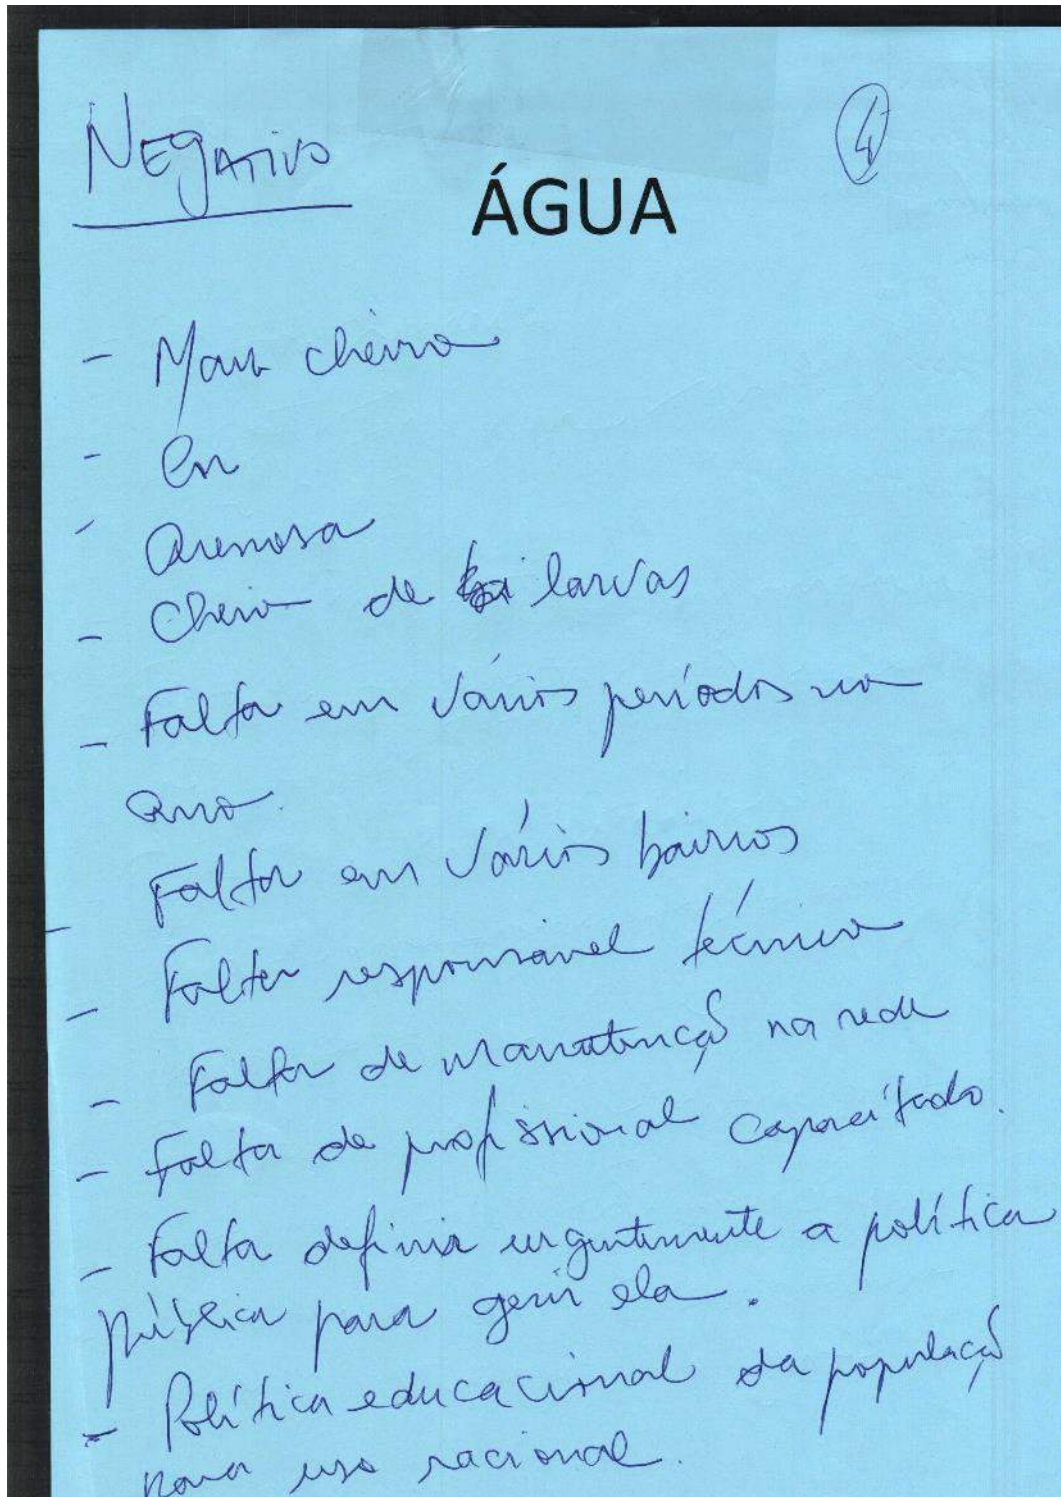 Negativo
4
ÁGUA
- Mau cheiro
- Cor
- Arenosa
- Cheio de larvas
- Falta em vários períodos no
ano.
- Falta em vários bairros
- Falta responsável técnico
- Falta de manutenção na rede
- Falta de profissional capacitado.
- Falta definir urgentemente a política
pública para gerir ela.
- Política educacional da população
para uso racional.